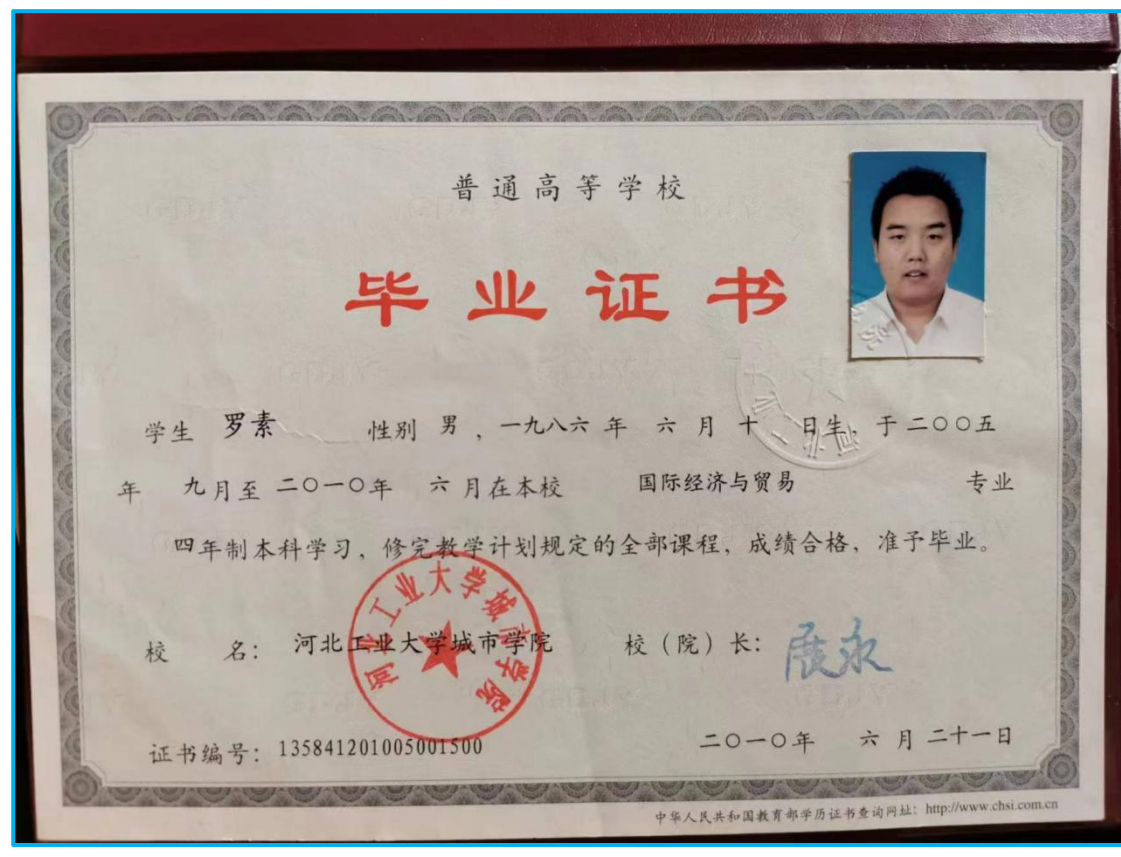 普通高等学校
毕业证书
学生 罗素 性别 男 ，一九八六 年 六 月 十一 日生，于 二〇〇五
年 九 月至 二〇一〇年 六 月在本校 国际经济与贸易 专业
四年制本科学习，修完教学计划规定的全部课程，成绩合格，准予毕业。
河北工业大学城市学院
校 名： 河北工业大学城市学院 校（院）长： 展永
证书编号： 135841201005001500 二〇一〇年 六 月 二十一日
中华人民共和国教育部学历证书查询网址：http://www.chsi.com.cn